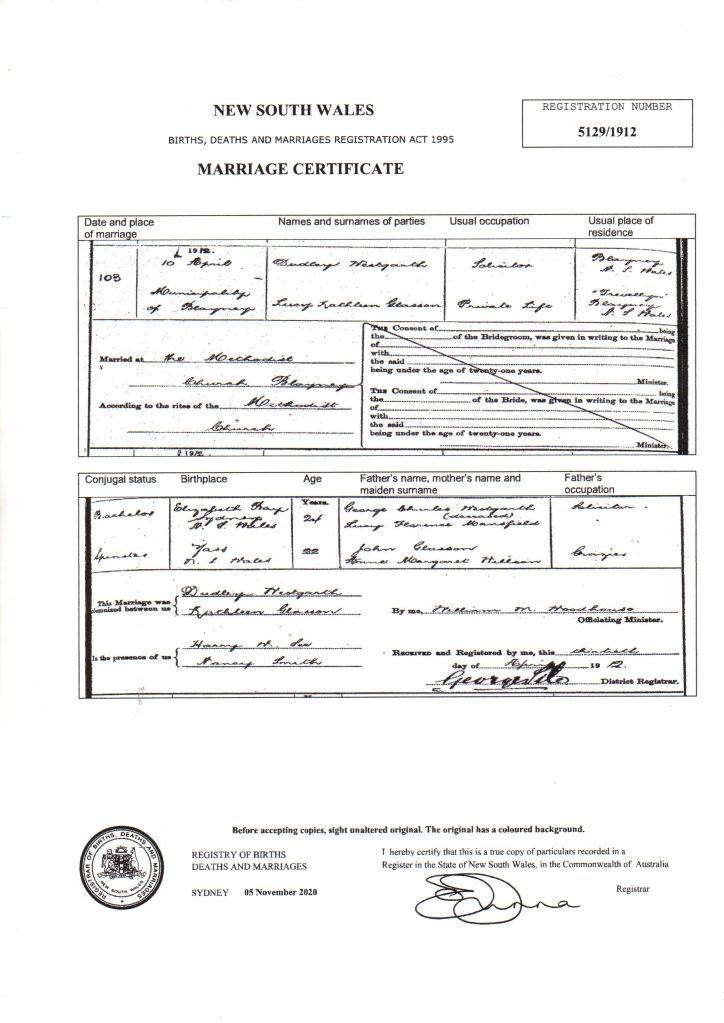 NEW SOUTH WALES
BIRTHS, DEATHS AND MARRIAGES REGISTRATION ACT 1995
MARRIAGE CERTIFICATE
REGISTRATION NUMBER
5129/1912
Date and place of marriage
Names and surnames of parties
Usual occupation
Usual place of residence
103
1912.
10 April
Municipality
of Blayney
Dudley Westgarth
Lucy Kathleen Glasson
Solicitor
Private Life
Blayney
N. S. Wales
"Trevellyn"
Blayney
N. S. Wales
Married at the Methodist
Church Blayney
According to the rites of the Methodist
Church
THE Consent of being
the of the Bridegroom, was given in writing to the Marriage
of
with
the said
being under the age of twenty-one years.
Minister.
THE Consent of being
the of the Bride, was given in writing to the Marriage
of
with
the said
being under the age of twenty-one years.
Minister.
1912
Conjugal status
Birthplace
Age
Father's name, mother's name and maiden surname
Father's occupation
Years.
Bachelor
Elizabeth Bay
Sydney
N. S. Wales
24
George Charles Westgarth
(deceased)
Lucy Florence Mansfield
Solicitor
Spinster
Yass
N. S. Wales
22
John Glasson
Anne Margaret
Grazier
This Marriage was
between us
Dudley Westgarth
Kathleen Glasson
By me, William M. Woodhouse
Officiating Minister.
In the presence of us
Harry
Nancy Smith
RECEIVED and Registered by me, this thirtieth
day of April 1912.
George
District Registrar.
Before accepting copies, sight unaltered original. The original has a coloured background.
REGISTRAR OF BIRTHS, DEATHS AND MARRIAGES
NEW SOUTH WALES
REGISTRY OF BIRTHS
DEATHS AND MARRIAGES
SYDNEY 05 November 2020
I hereby certify that this is a true copy of particulars recorded in a
Register in the State of New South Wales, in the Commonwealth of Australia
Registrar